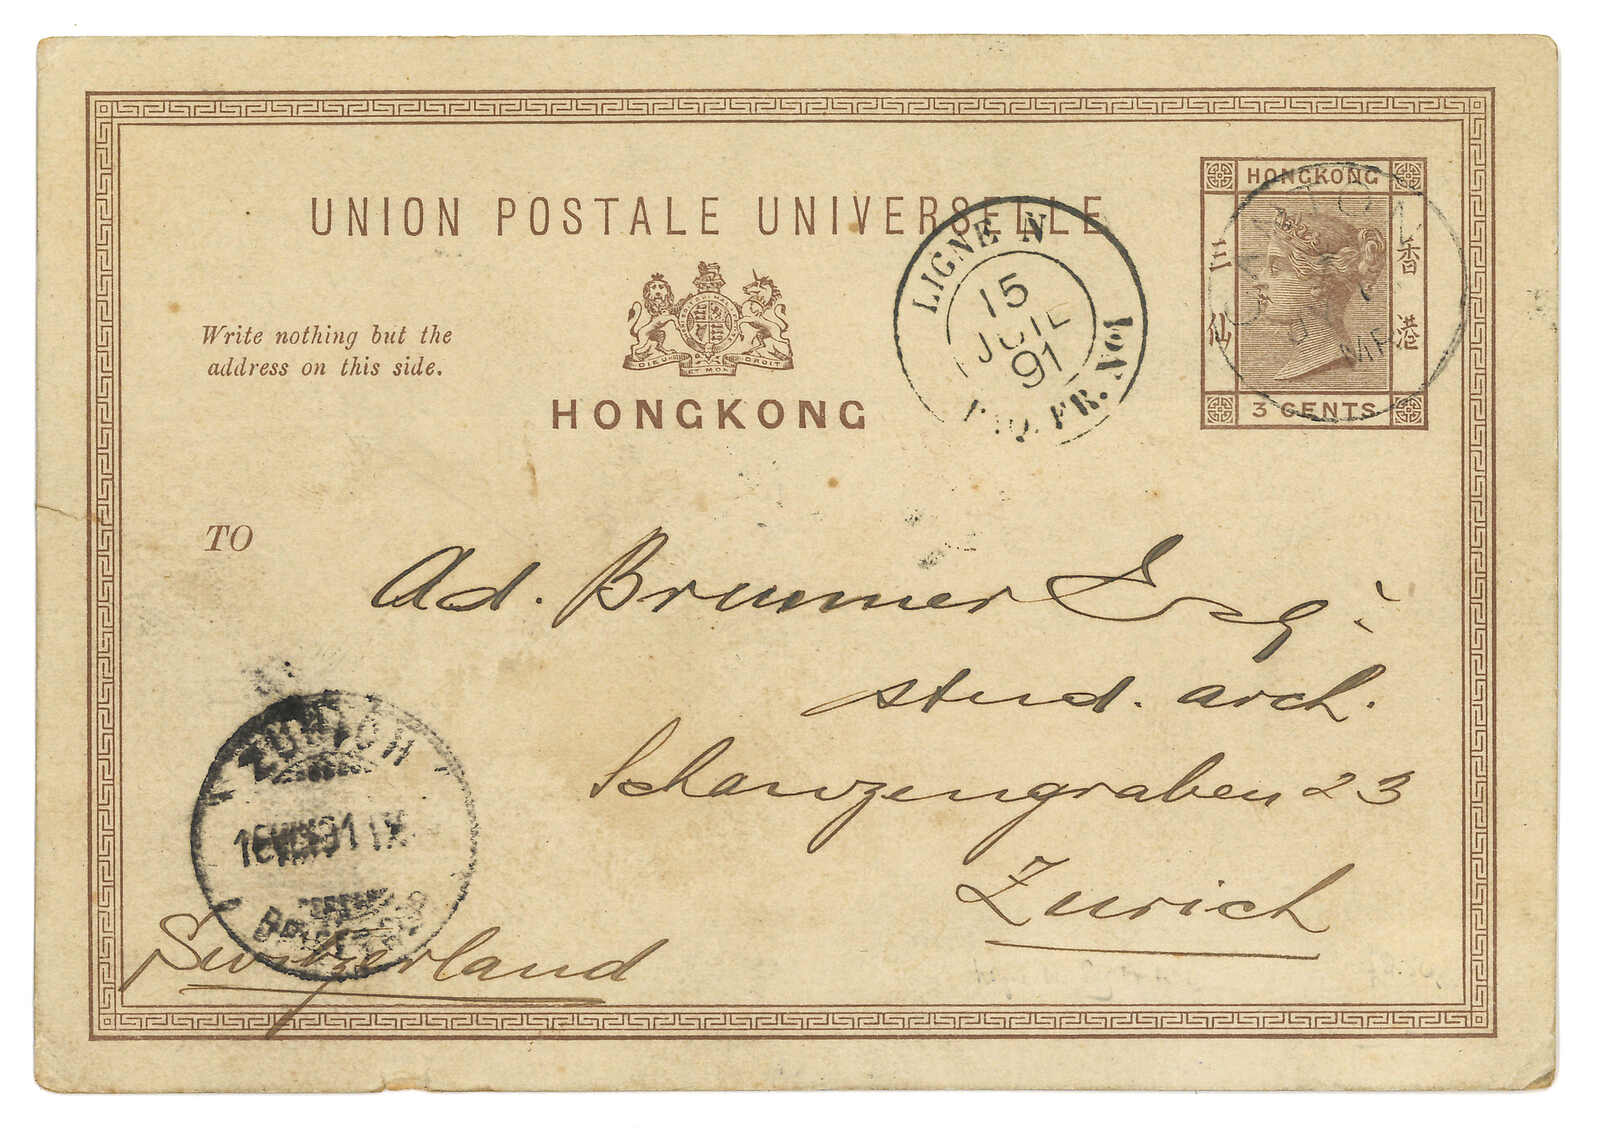 UNION POSTALE UNIVERSELLE
HONGKONG
三仙
香港
3 CENTS
LIGNE N
15
JUIL
91
FR. Nº1
Write nothing but the
address on this side.
DIEU ET MON DROIT
HONGKONG
TO
Ad. Brunner Esqr
stud. arch.
Schanzengraben 23
Zurich
Switzerland
ZÜRICH